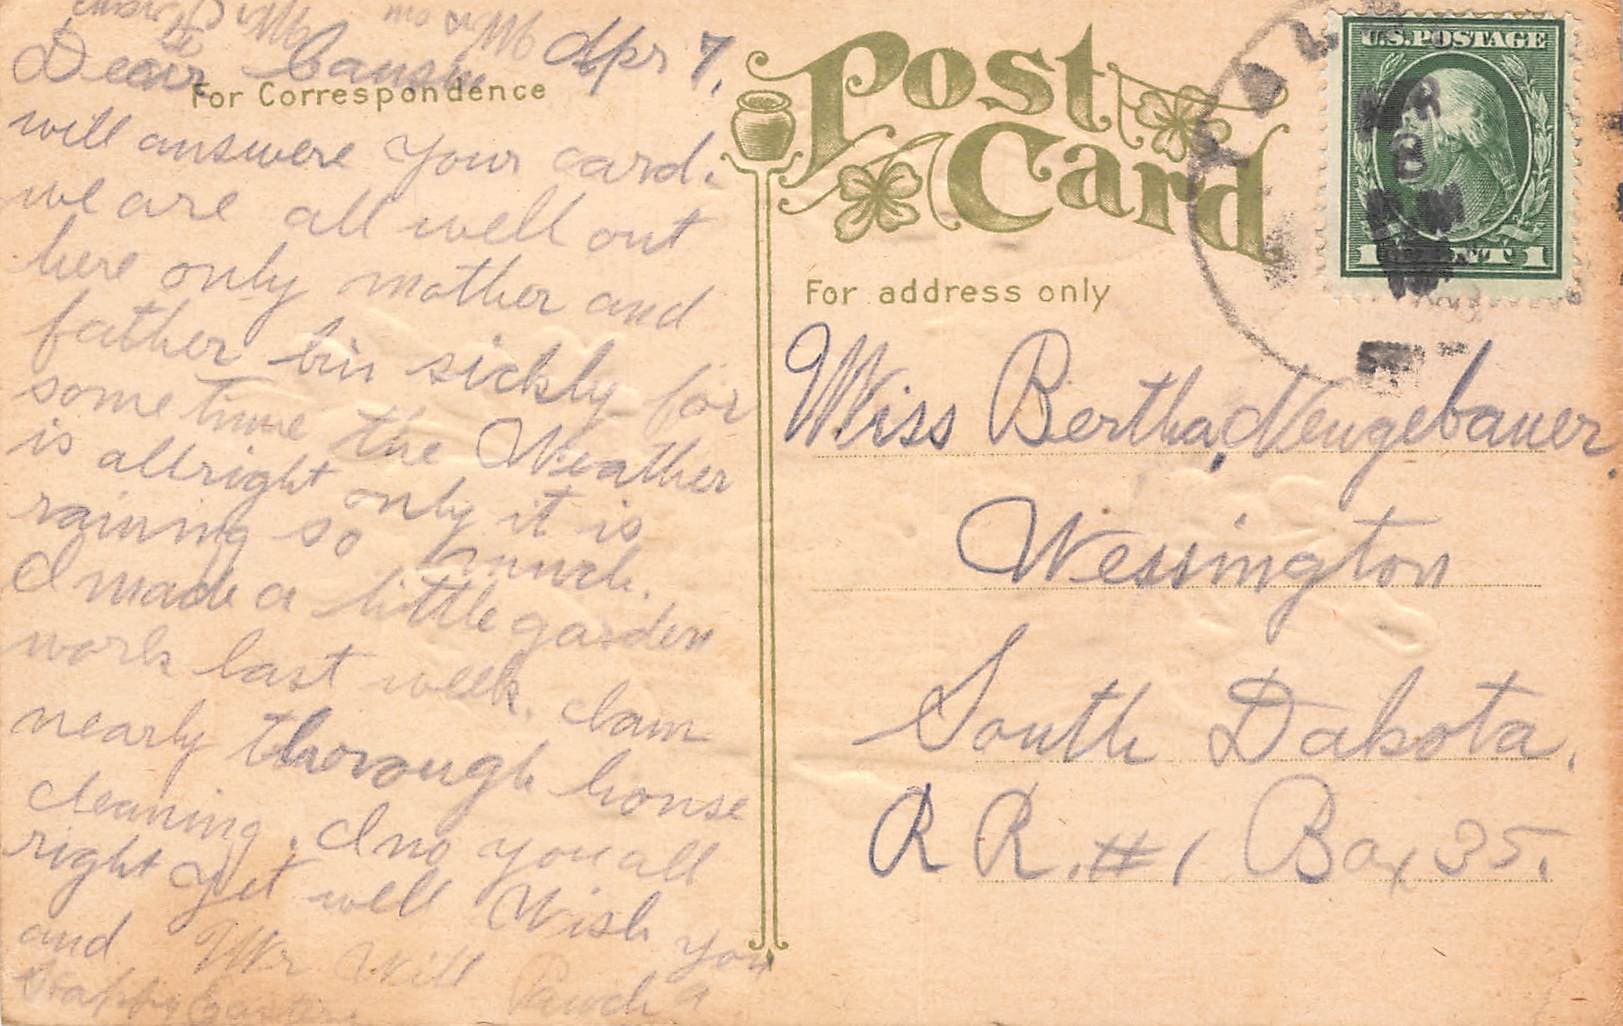 Apr 7,
Dear Cousin
For Correspondence
will answere your card.
we are all well out
here only mother and
father bin sickly for
some time the Weather
is allright only it is
raining so much.
I made a little garden
work last week. I am
nearly thorough house
cleaning. I no you all
right yet well Wish you
and Mr Will a
Happy Easter.
Post
Card
For address only
U.S. POSTAGE
1 CENT 1
8
Miss Bertha Neugebauer.
Wessington
South Dakota,
R R. #1 Box 35.